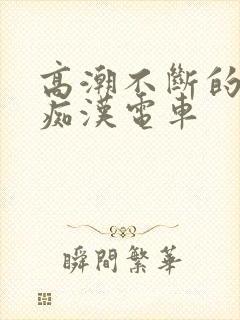 高潮不斷的
痴漢電車
瞬間繁華